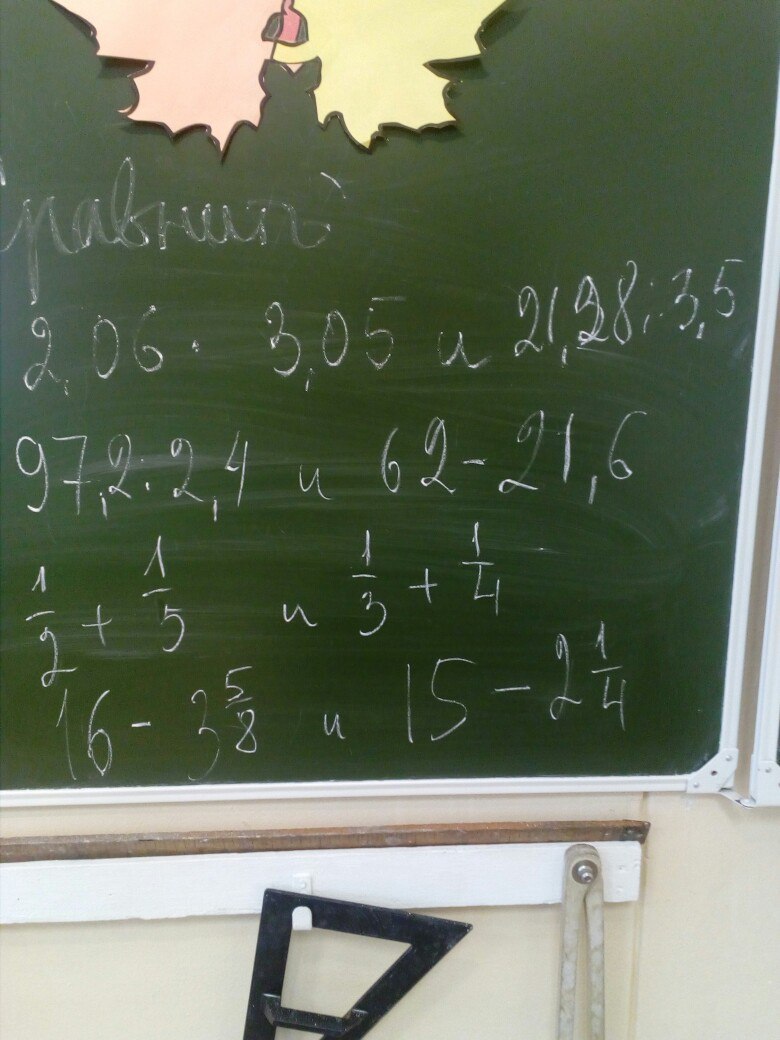 Сравнить
2,06 · 3,05 и 21,28 : 3,5
97,2 : 2,4 и 62 - 21,6
1/2 + 1/5 и 1/3 + 1/4
16 - 3 5/8 и 15 - 2 1/4